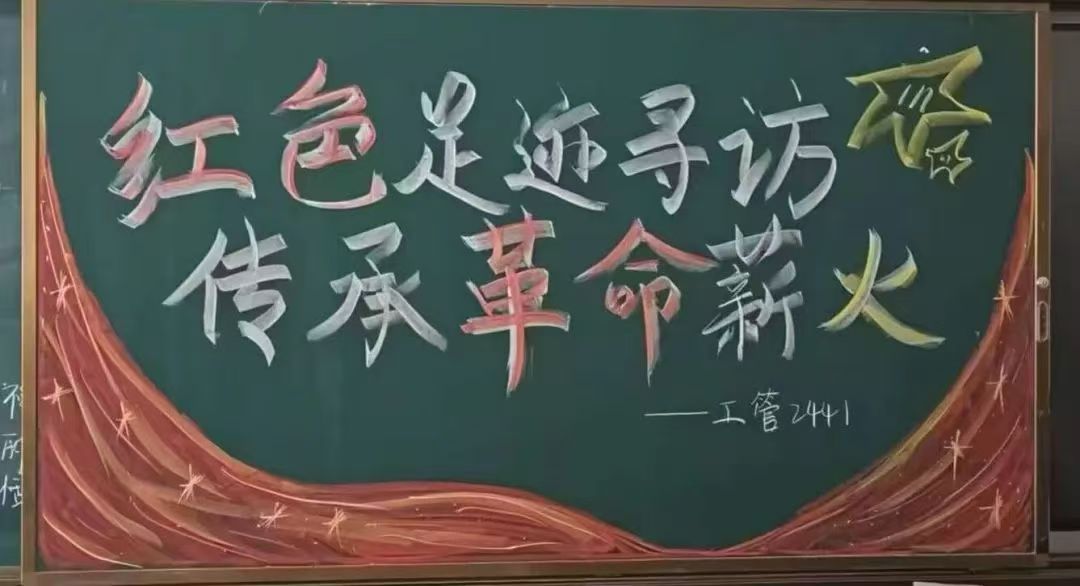 红色足迹寻访
传承革命薪火
——工管2441